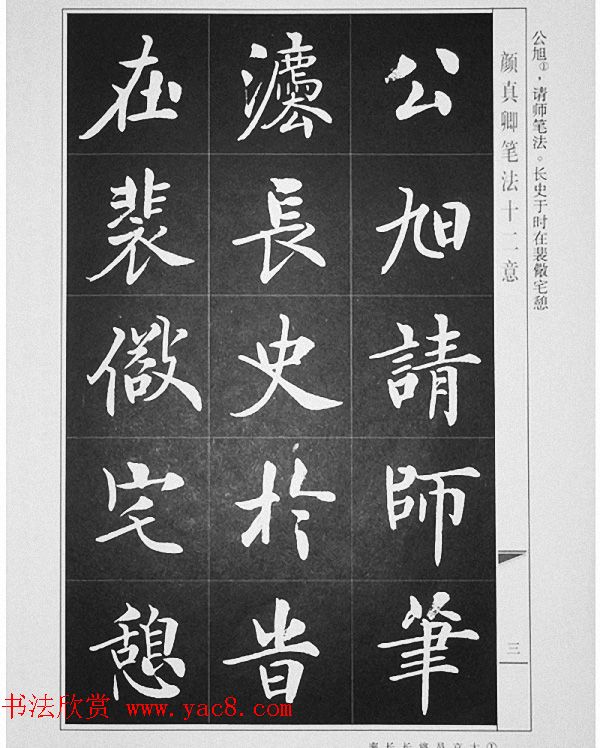 公旭①，请师笔法。长史于时在裴儆宅憩
颜真卿笔法十二意
三
公旭請師筆
灋長史於旹
在裴儆宅憩
书法欣赏 www.yac8.com